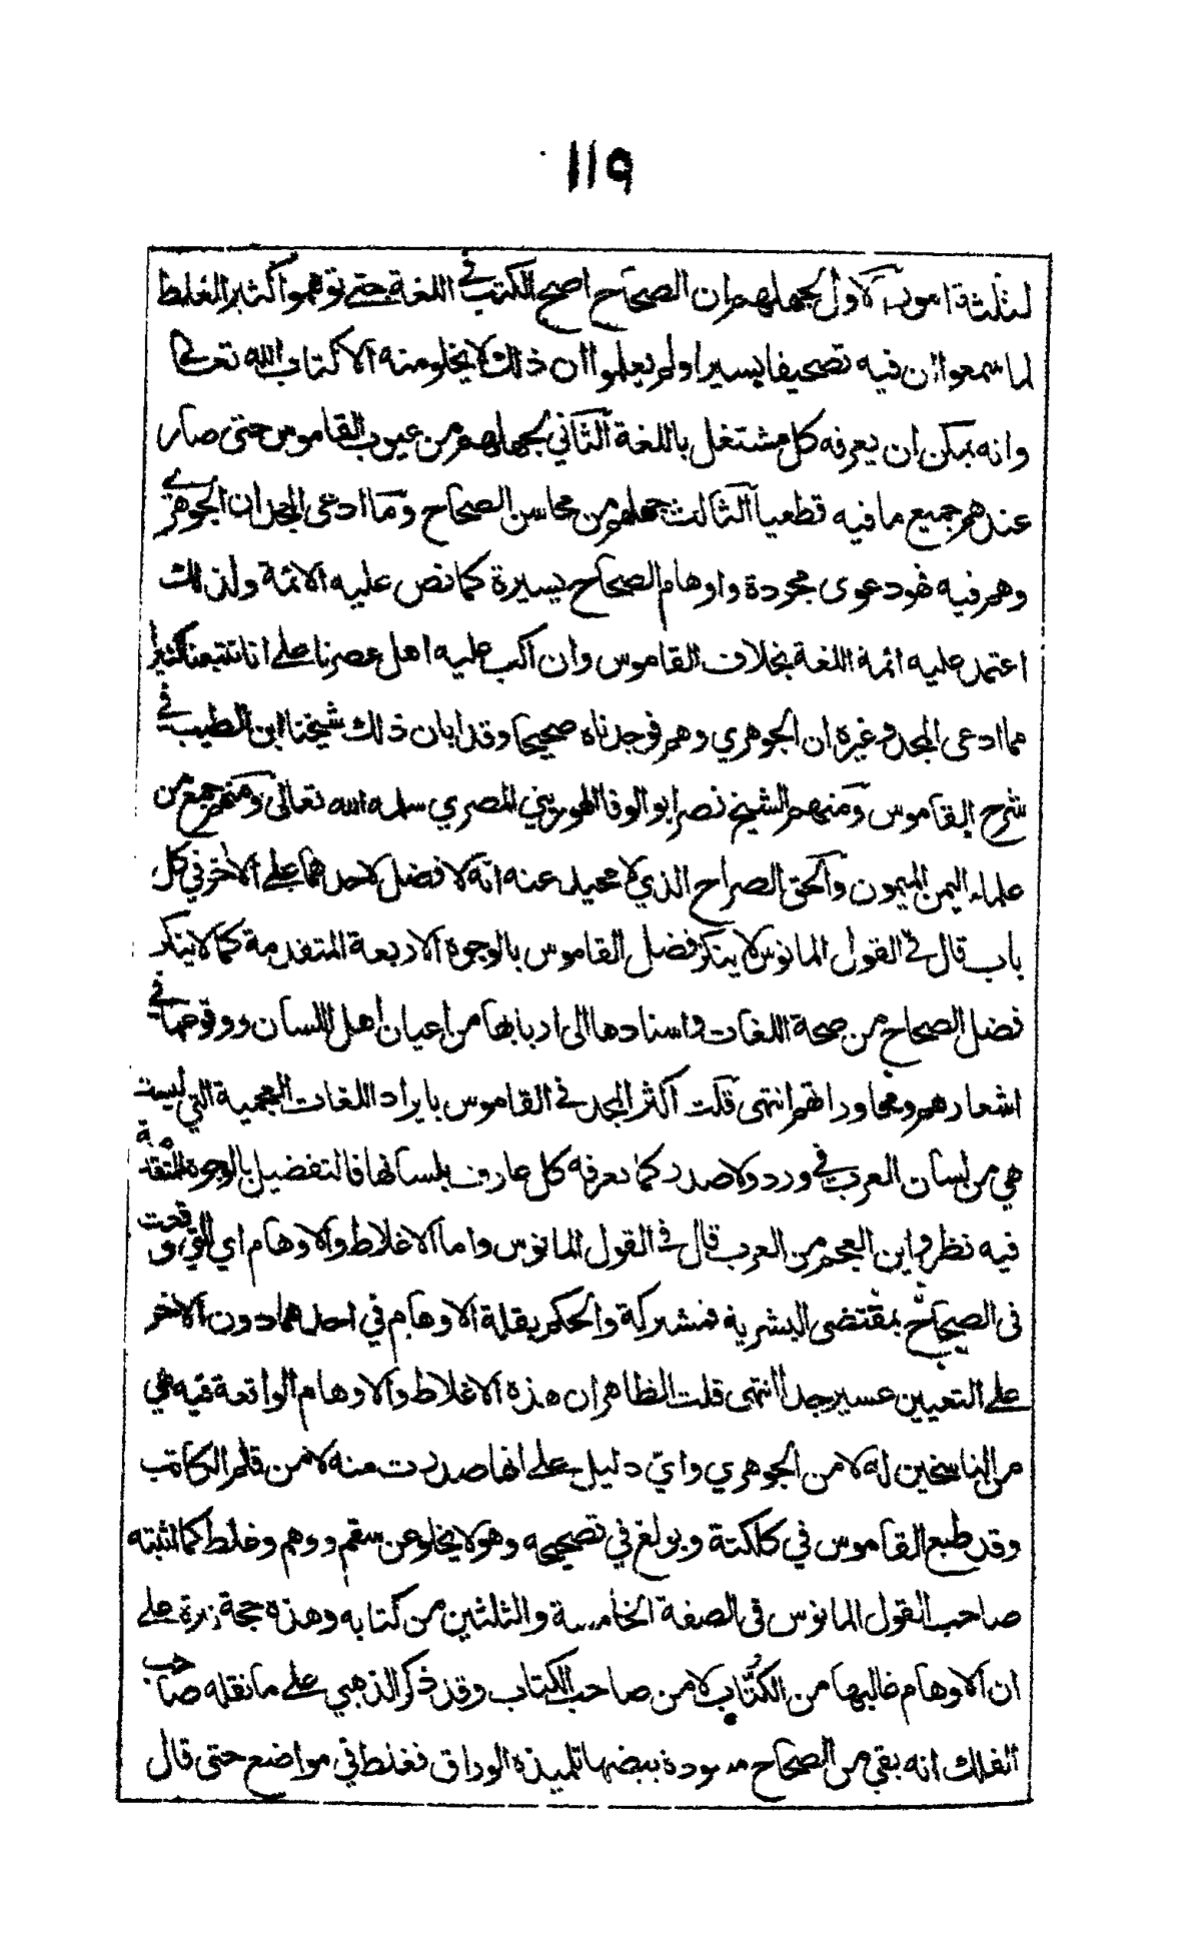 ١١٩
لثلثة امور الاول لجهلهم ان الصحاح اصح الكتب في اللغة حتى توهموا كثير الغلط
لما سمعوا ان فيه تصحيفا يسيرا ولم يعلموا ان ذلك لا يخلو منه الا كتاب الله تعالى
وانه يمكن ان يعرفه كل مشتغل باللغة الثاني لجهلهم من عيوب القاموس حتى صار
عندهم جميع ما فيه قطعيا الثالث جهلهم من محاسن الصحاح وما ادعى المجد ان الجوهري
وهم فيه فهو دعوى مجردة واوهام الصحاح يسيرة كما نص عليه الائمة ولذلك
اعتمد عليه ائمة اللغة بخلاف القاموس وان اكب عليه اهل عصرنا على انا تتبعنا كثيرا
مما ادعى المجد وغيره ان الجوهري وهم فوجدناه صحيحا وقد ابان ذلك شيخنا ابن الطيب في
شرح القاموس ومنهم الشيخ نصر ابو الوفا الهوريني المصري سلمه الله تعالى ومنهم جمع من
علماء اليمن الميمون والحق الصراح الذي لا محيد عنه انه لا فضل لاحدهما على الاخر في كل
باب قال في القول المانوس لا ينكر فضل القاموس بالوجوه الاربعة المتقدمة كما لا ينكر
فضل الصحاح من صحة اللغات واسنادها الى اربابها من اعيان اهل اللسان ووقوعها في
اشعارهم ومحاوراتهم انتهى قلت اكثر المجد في القاموس بايراد اللغات العجمية التي ليست
هي من لسان العرب في ورد ولا صدر كما يعرفه كل عارف بلسانها فالتفضيل بالوجوه المتقدمة
فيه نظر واين العجم من العرب قال في القول المانوس واما الاغلاط والاوهام اي التي وقعت
في الصحاح بمقتضى البشرية فمشتركة والحكم بقلة الاوهام في احدهما دون الاخر
على التعيين عسير جدا انتهى قلت الظاهر ان هذه الاغلاط والاوهام الواقعة فيه هي
من الناسخين له لا من الجوهري واي دليل على انها صدرت منه لا من قلم الكاتب
وقد طبع القاموس في كلكتة وبولغ في تصحيحه وهو لا يخلو عن سقم ووهم وغلط كما اثبته
صاحب القول المانوس في الصفة الخامسة والثلثين من كتابه وهذه حجة نيرة على
ان الاوهام غالبها من الكتاب لا من صاحب الكتاب وقد ذكر الذهبي على ما نقله صاحب
الفلك انه بقي من الصحاح مسودة بيضها تلميذه الوراق فغلط في مواضع حتى قال